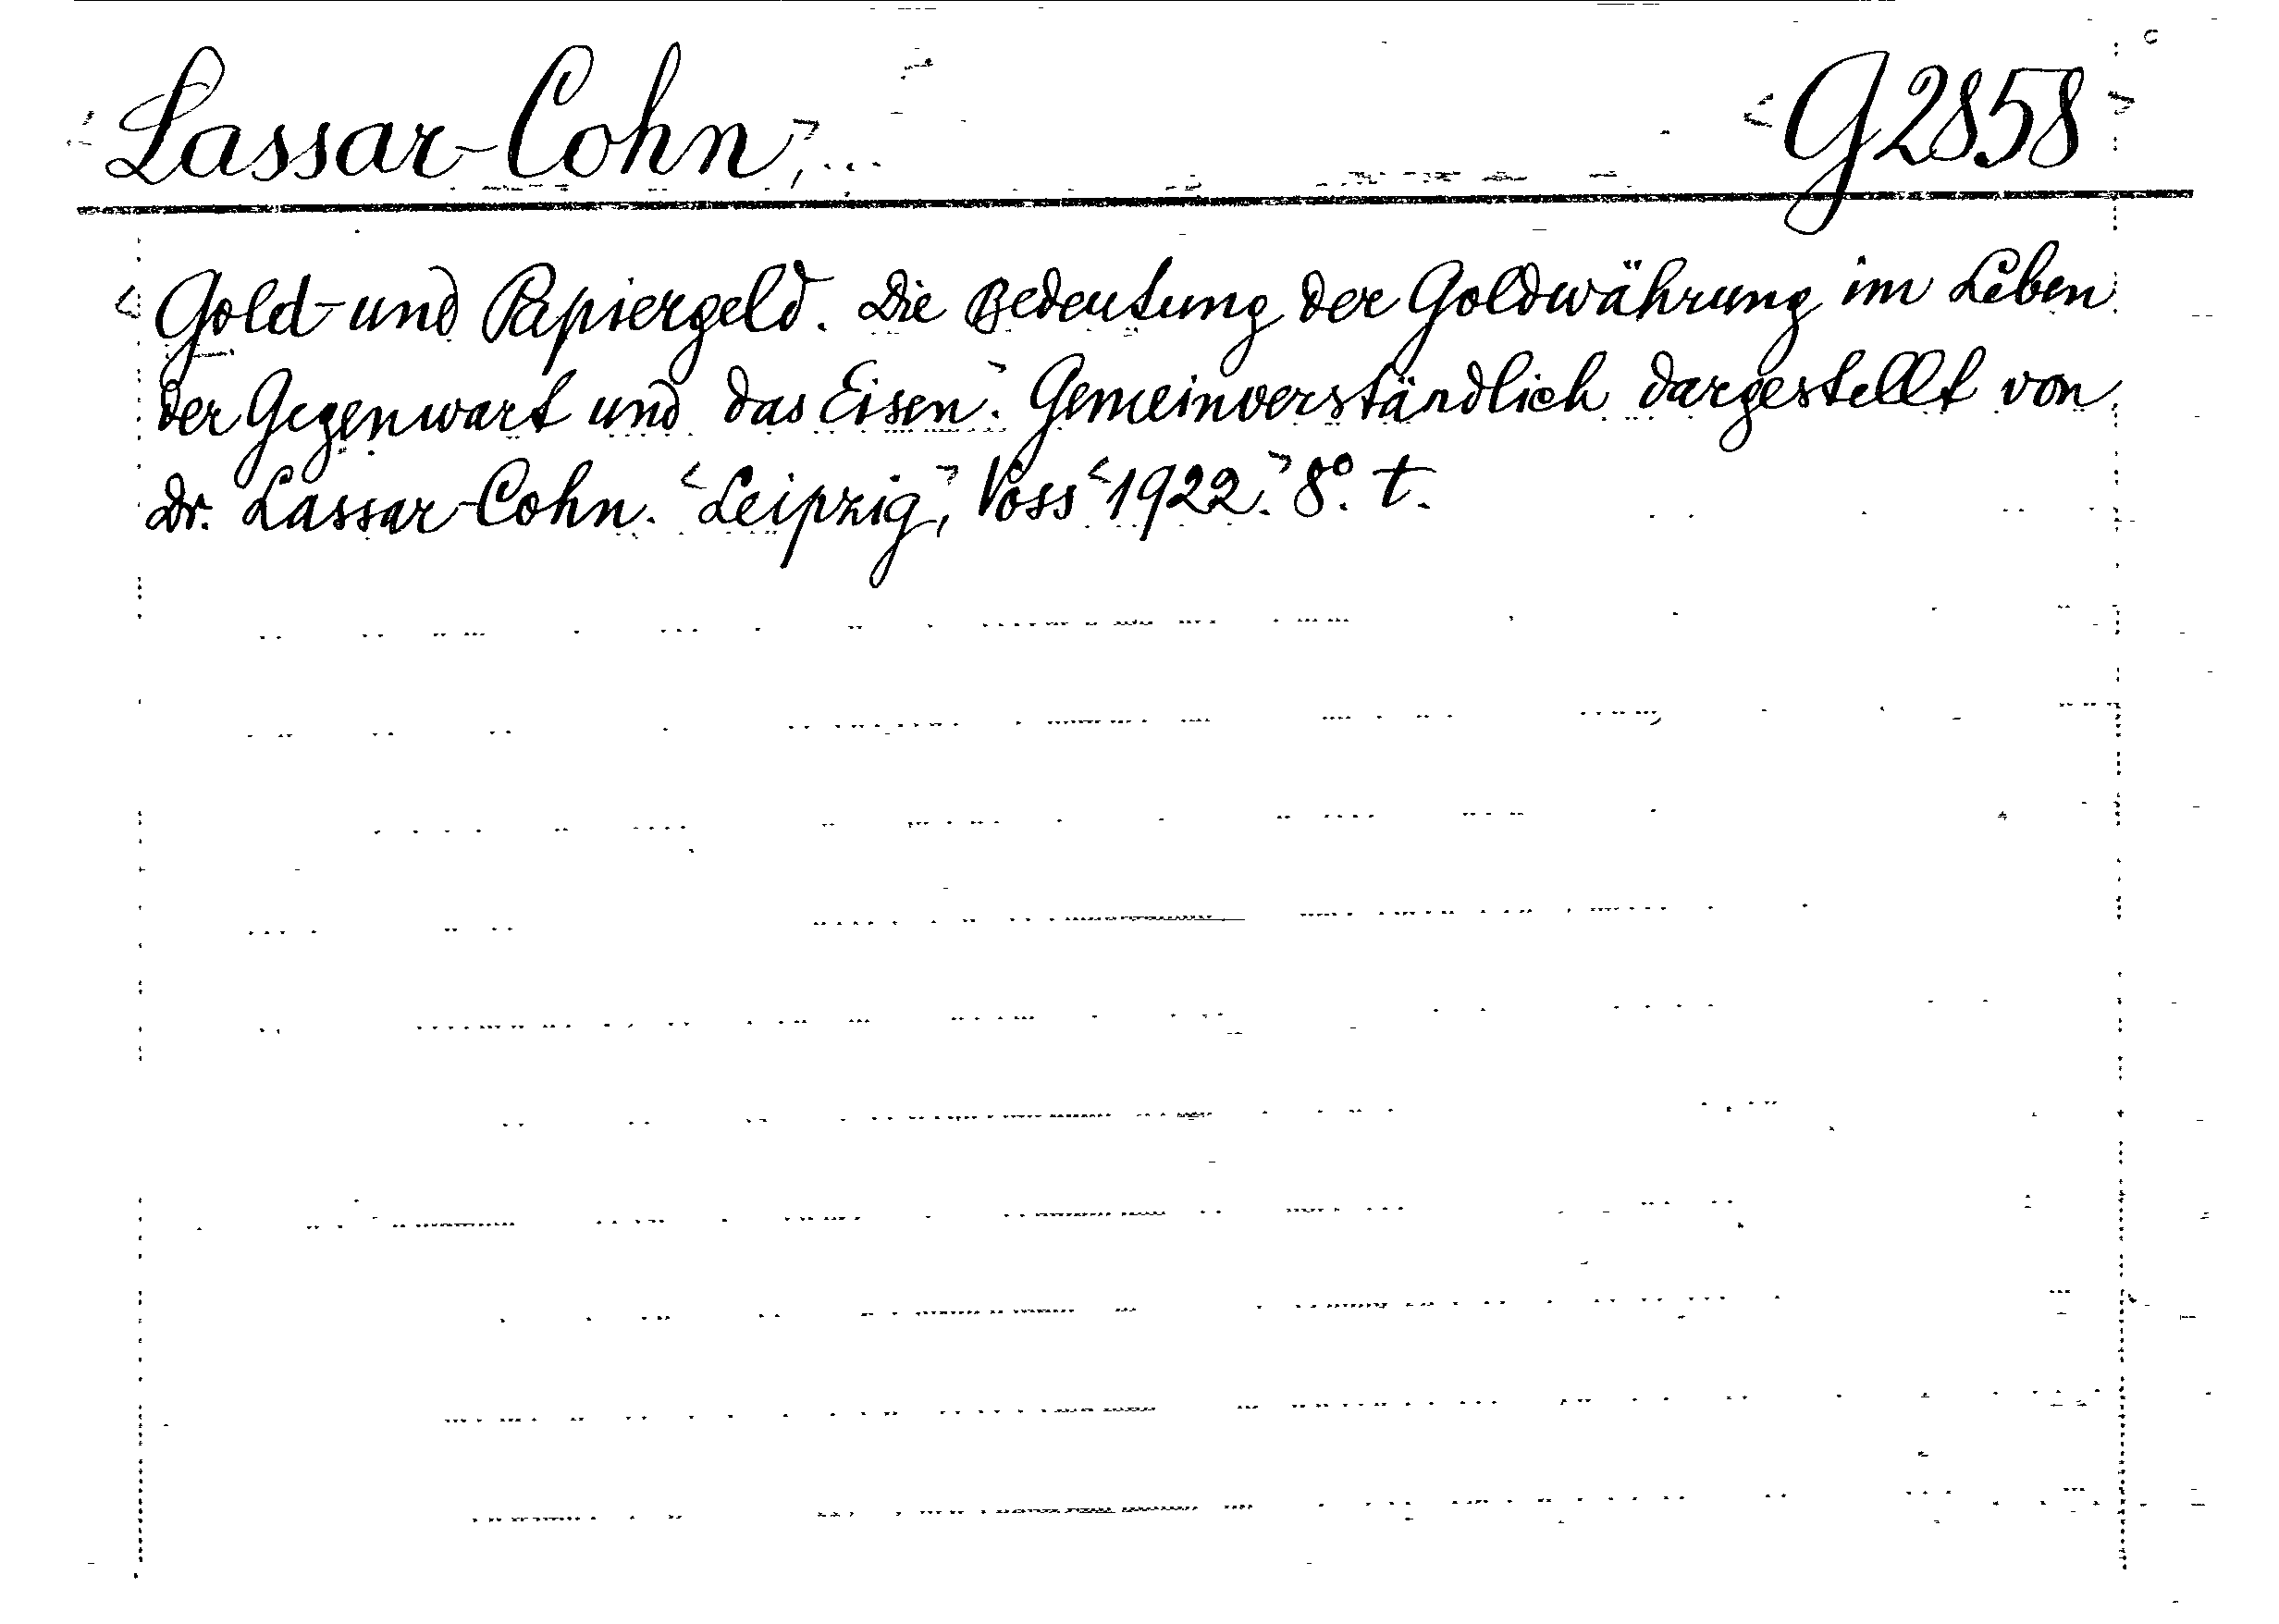 Lassar-Cohn, ... G2858
Gold- und Papiergeld. Die Bedeutung der Goldwährung im Leben
der Gegenwart und das Eisen. Gemeinverständlich dargestellt von
Dr. Lassar-Cohn. Leipzig, Voss 1922. 8°. t.